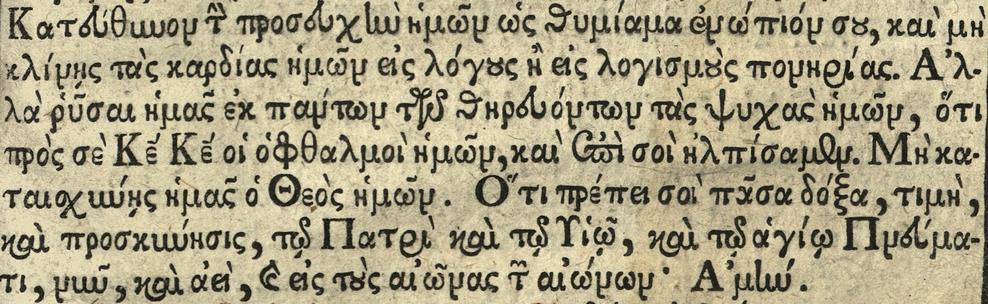 Κατεύθυνον τὴν προσευχὴν ἡμῶν ὡς θυμίαμα ἐνώπιόν σου, καὶ μὴ
κλίνῃς τὰς καρδίας ἡμῶν εἰς λόγους ἢ εἰς λογισμοὺς πονηρίας. Ἀλ-
λὰ ῥῦσαι ἡμᾶς ἐκ πάντων τῶν θηρευόντων τὰς ψυχὰς ἡμῶν, ὅτι
πρὸς σὲ Κε Κε οἱ ὀφθαλμοὶ ἡμῶν, καὶ ἐπὶ σοὶ ἠλπίσαμεν. Μὴ κα-
ταισχύνῃς ἡμᾶς ὁ Θεὸς ἡμῶν. Ὅτι πρέπει σοὶ πᾶσα δόξα, τιμὴ,
καὶ προσκύνησις, τῷ Πατρὶ καὶ τῷ Υἱῷ, καὶ τῷ ἁγίῳ Πνεύμα-
τι, νῦν, καὶ ἀεὶ, καὶ εἰς τοὺς αἰῶνας τῶν αἰώνων· Ἀμήν.